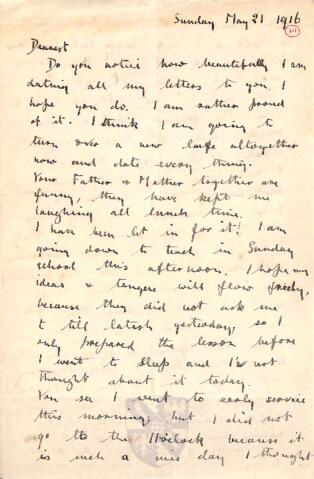 Sunday May 21 1916
Dearest
Do you notice how beautifully I am
dating all my letters to you, I
hope you do. I am rather proud
of it. I think I am going to
turn over a new leafe altogether
now and date every thing.
Your Father & Mother together are
funny, they have kept me
laughing all lunch time.
I have been let in for it! I am
going down to teach in Sunday
school this afternoon. I hope my
ideas & tongue will flow freely,
because they did not ask me
to till latish yesterday, so I
only prepared the lesson before
I went to sleep and not
thought about it today.
You see I went to early service
this morning, but I did not
go to the 11 o'clock because it
is such a nice day I thought